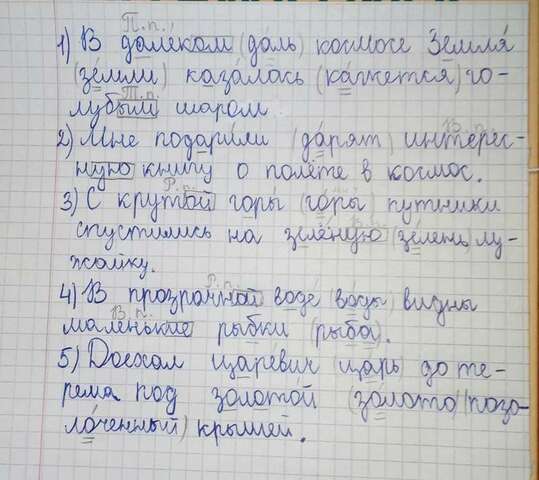 П.п.
1) В далеком (даль) космосе Земля
(земли) казалась (кажется) го-
Т.п.
лубым шаром
2) Мне подарили (дарят) интерес-
В.п.
ную книгу о полёте в космос.
Р.п.
3) С крутой горы (горы) путники
спустились на зелёную (зелень) лу-
жайку.
Р.п.
4) В прозрачной воде (воды) видны
В.п.
маленькие рыбки (рыба).
5) Доехал царевич (царь) до те-
рема под золотой (золото) (позо-
лоченный) крышей.